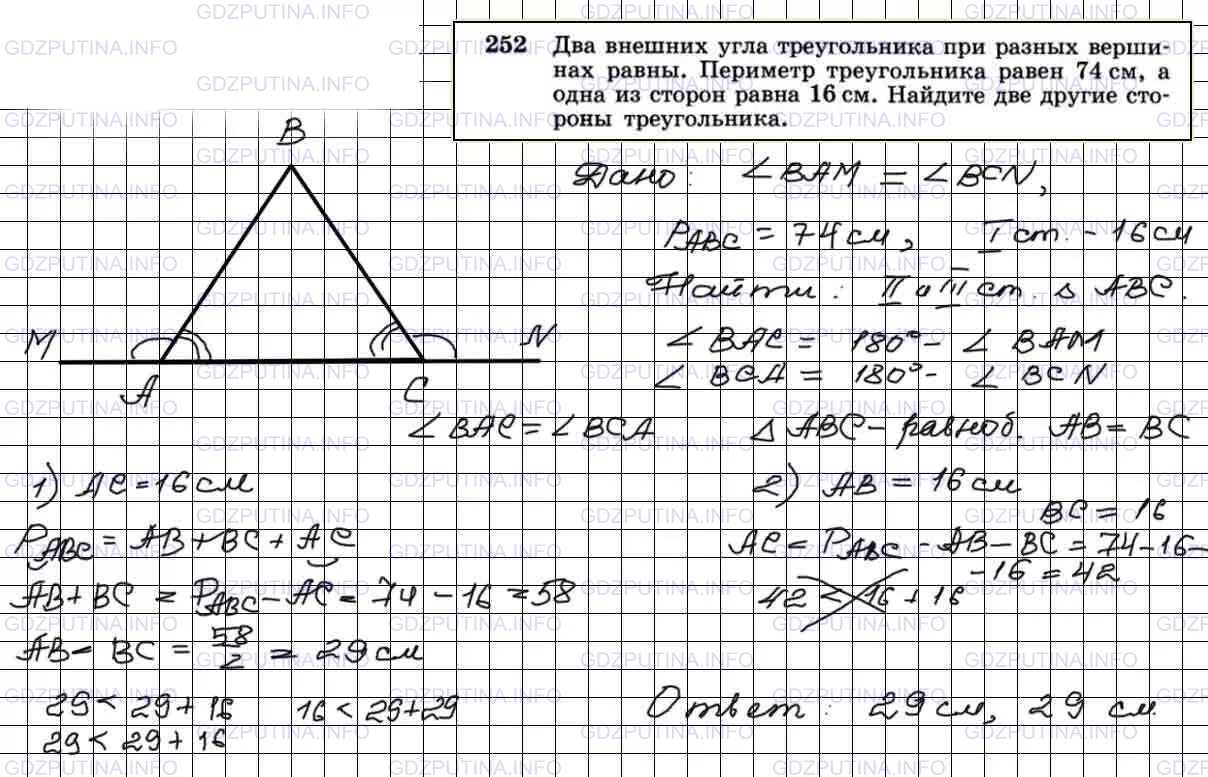 252 Два внешних угла треугольника при разных верши-
нах равны. Периметр треугольника равен 74 см, а
одна из сторон равна 16 см. Найдите две другие сто-
роны треугольника.
B
M
A
C
N
Дано: ∠BAM = ∠BCN,
P_ABC = 74 см, I ст. - 16 см
Найти: II и III ст. ▵ ABC.
∠BAC = 180° - ∠BAM
∠BCA = 180° - ∠BCN
∠BAC = ∠BCA
△ABC - равноб. AB = BC
1) AC = 16 см
P_ABC = AB + BC + AC
AB + BC = P_ABC - AC = 74 - 16 = 58
AB = BC = 58/2 = 29 см
29 < 29 + 16 16 < 29 + 29
29 < 29 + 16
2) AB = 16 см
BC = 16
AC = P_ABC - AB - BC = 74 - 16 -
- 16 = 42
42 < 16 + 16
Ответ: 29 см, 29 см.
GDZPUTINA.INFO